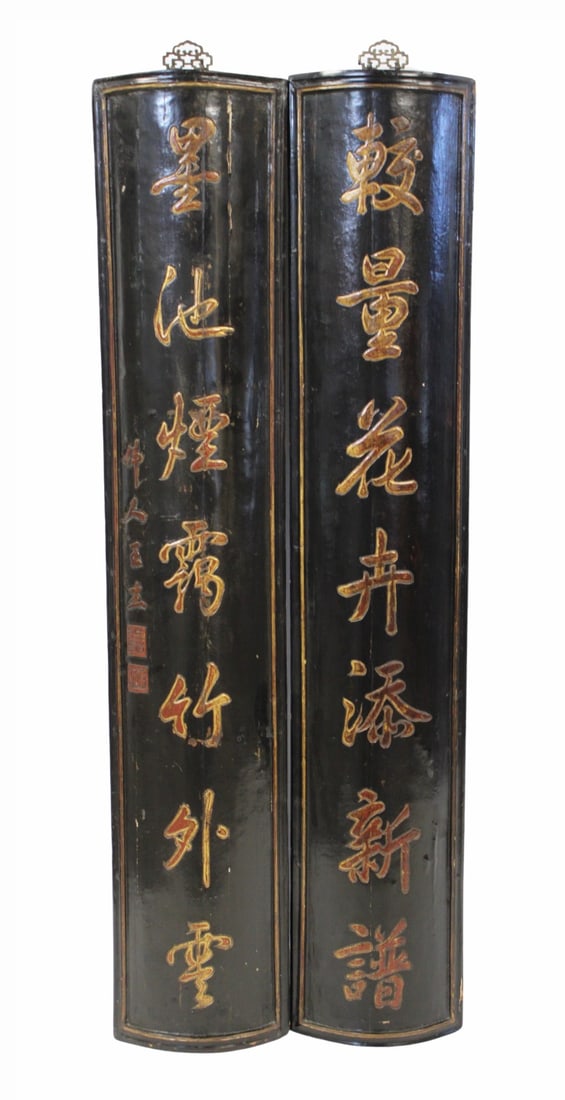 較量花卉添新譜
墨池煙靄竹外雲
人王